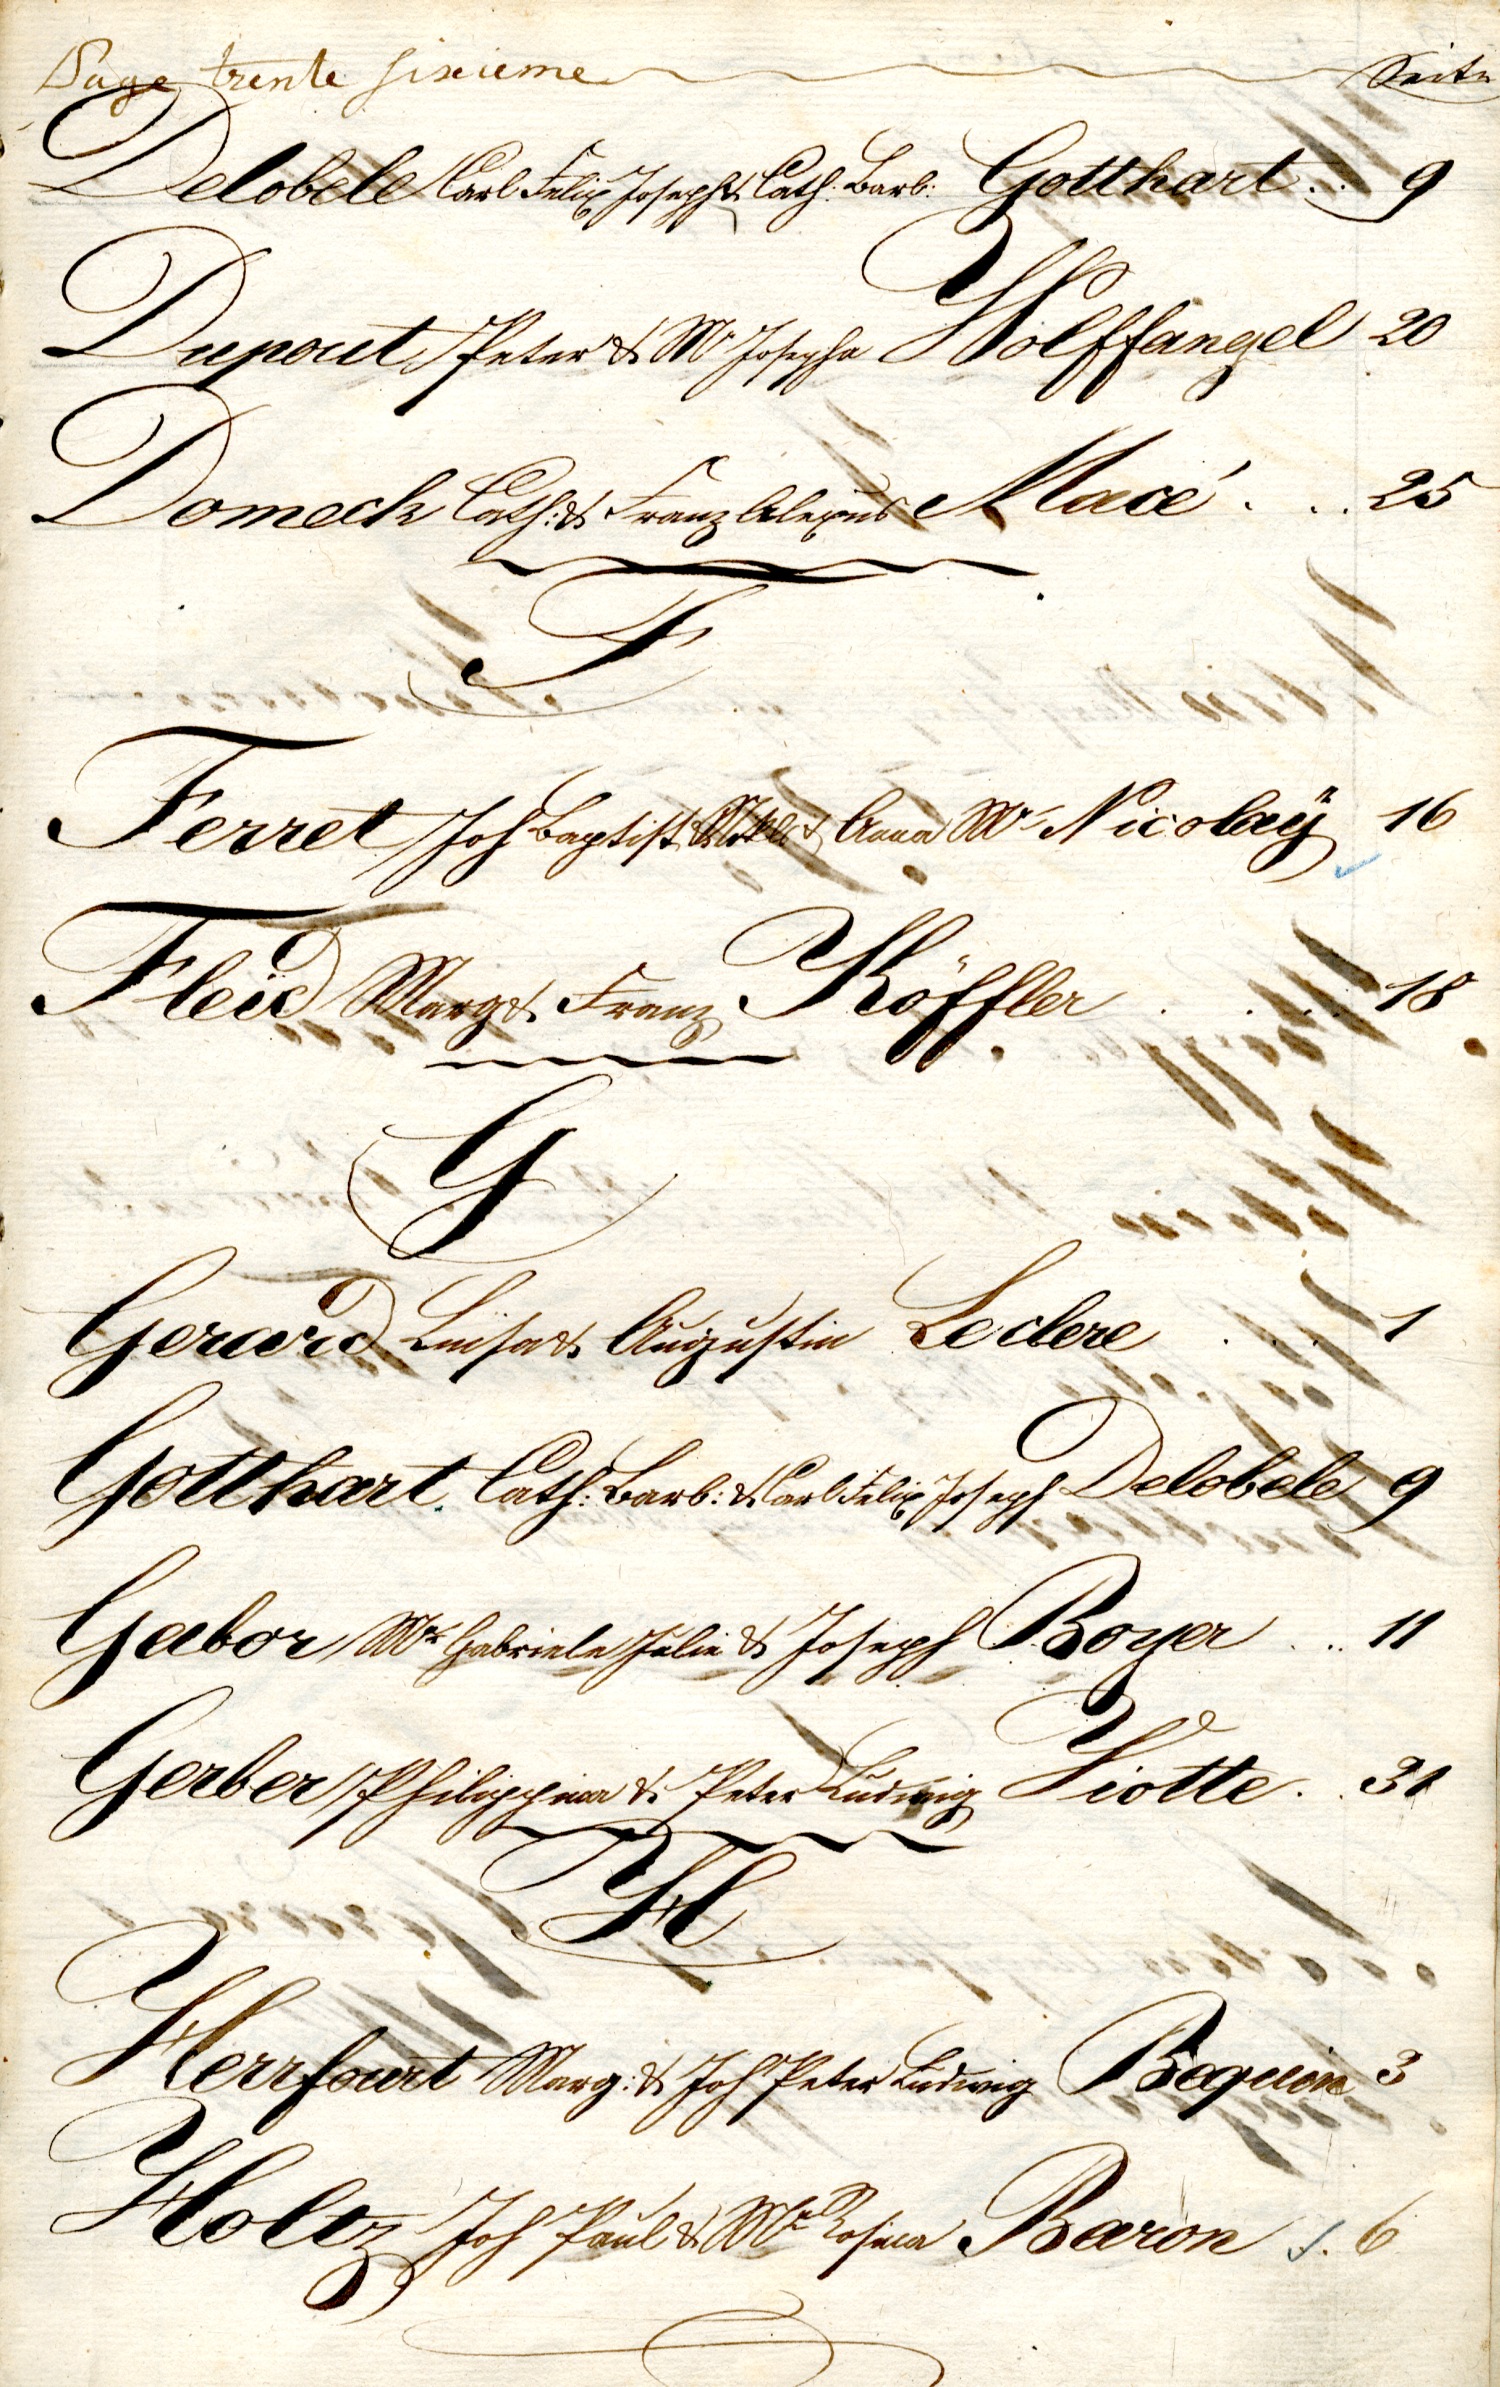 Page trente sixieme Seite
Delobele Carl Felix Joseph & Cath: Barb: Gotthart . . 9
Dupont Peter & Mr Josepha Wolffangel 20
Domeck Cath: & Franz Alexius Macé . . . 25
F
Ferret Joh Baptist & Anna Mr Nicolaÿ 16
Fleid Marg & Franz Köffler . . . . 18
G
Gerard Luisa & Augustin Leclere . . . 1
Gotthart Cath: Barb: & Carl Felix Joseph Delobele 9
Gabor Mr Gabriele Julie & Joseph Boyer . . . 11
Gerber Philippina & Peter Ludwig Viotte . . 31
H
Herrfourt Marg: & Joh Peter Ludwig Bequin 3
Holtz Joh Paul & Mr Rosina Baron . 6